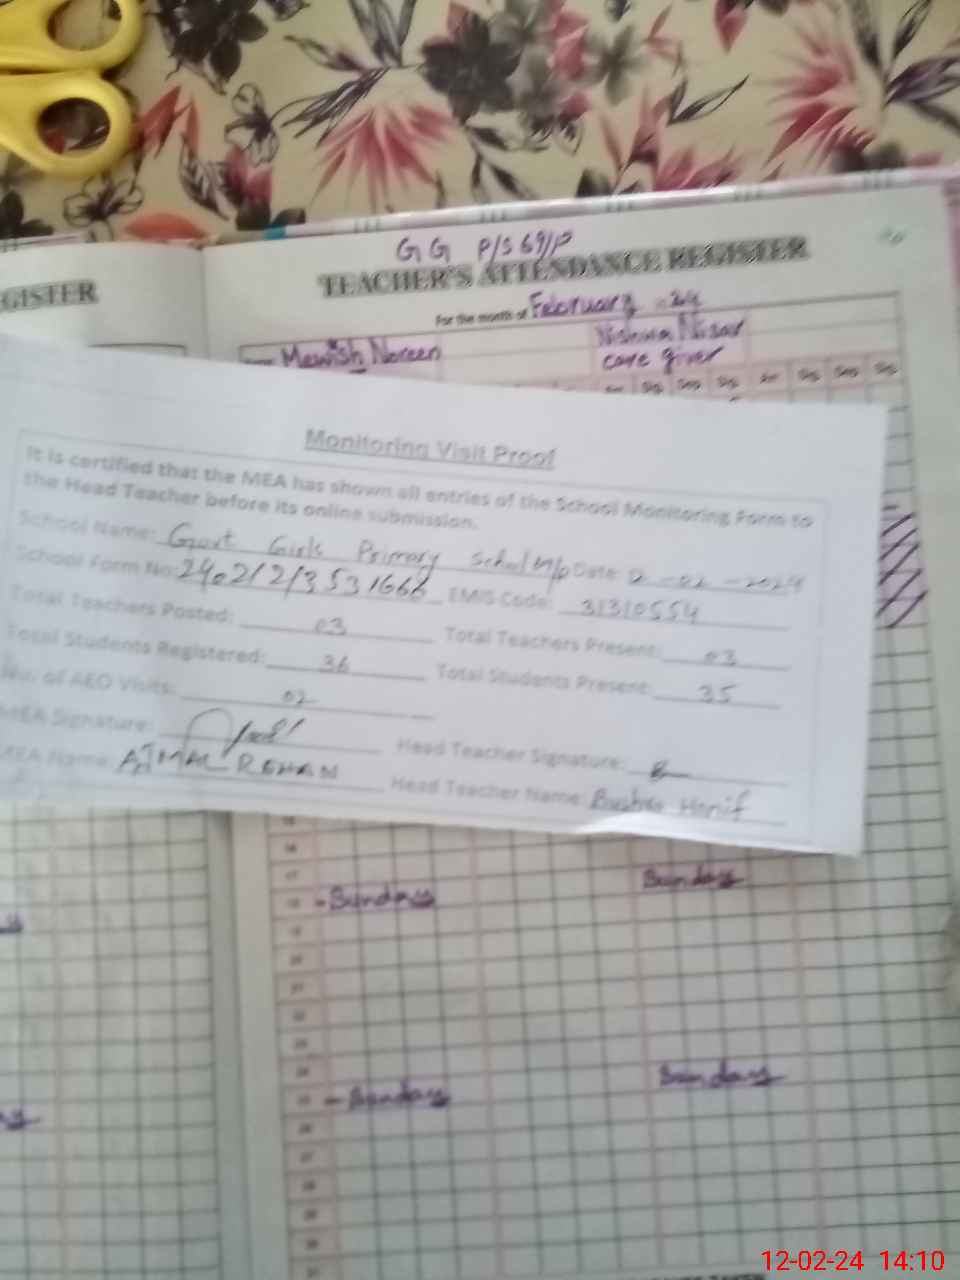 GG P/S 69/P
TEACHER'S ATTENDANCE REGISTER
GISTER
For the month of February - 24
Mewish Noreen
Nishwa Nisar
care giver
Monitoring Visit Proof
It is certified that the MEA has shown all entries of the School Monitoring Form to
the Head Teacher before its online submission.
School Name: Govt Girls Primary School Date: 12-02-2024
School Form No: EMIS Code: 31310554
Total Teachers Posted: 03 Total Teachers Present: 03
Total Students Registered: 36 Total Students Present: 35
No. of AEO Visits: 02
MEA Signature: Head Teacher Signature:
MEA Name: AJMAL REHAN Head Teacher Name: Bushra Hanif
Sunday Sunday
Sunday Sunday
12-02-24 14:10